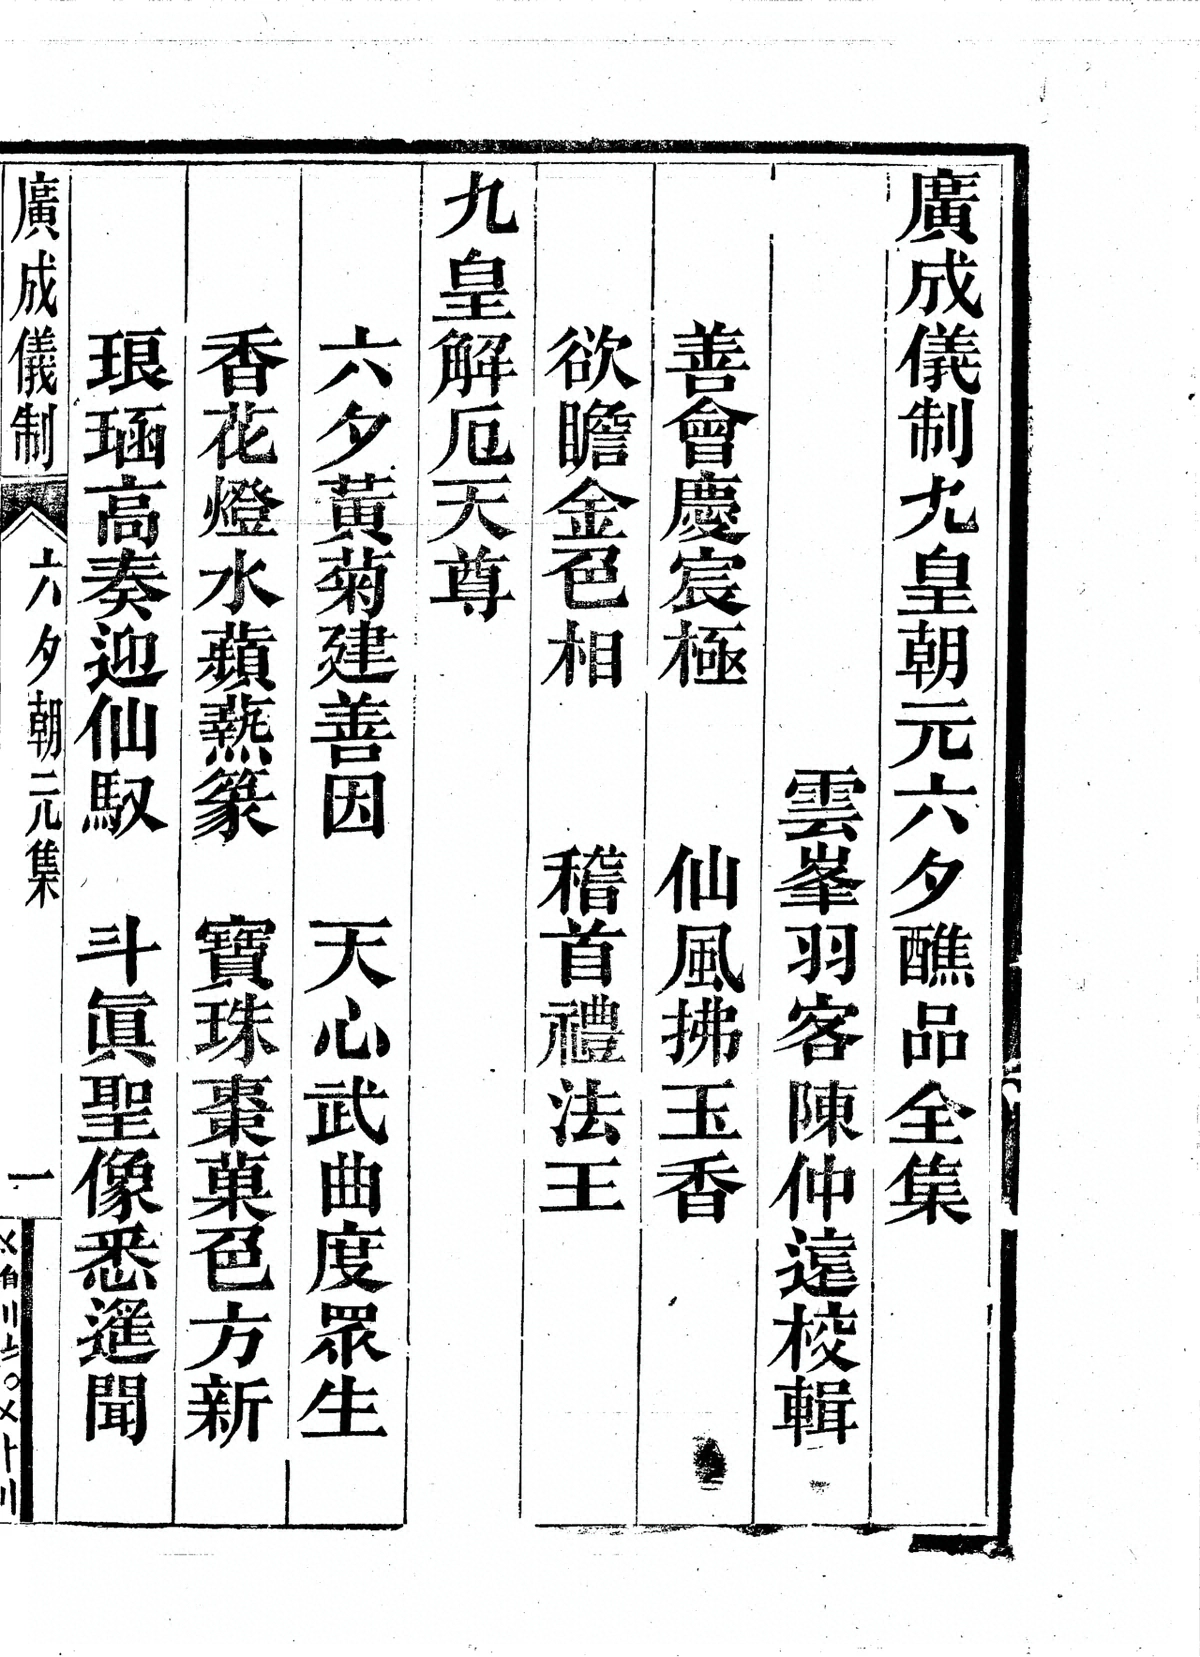 廣成儀制九皇朝元六夕醮品全集
雲峯羽客陳仲遠校輯
善會慶宸極　仙風拂玉香
欲瞻金色相　稽首禮法王
九皇解厄天尊
六夕黃菊建善因　天心武曲度眾生
香花燈水蘋爇篆　寶珠棗菓色方新
琅函高奏迎仙馭　斗眞聖像悉遥聞
廣成儀制　六夕朝元集　一